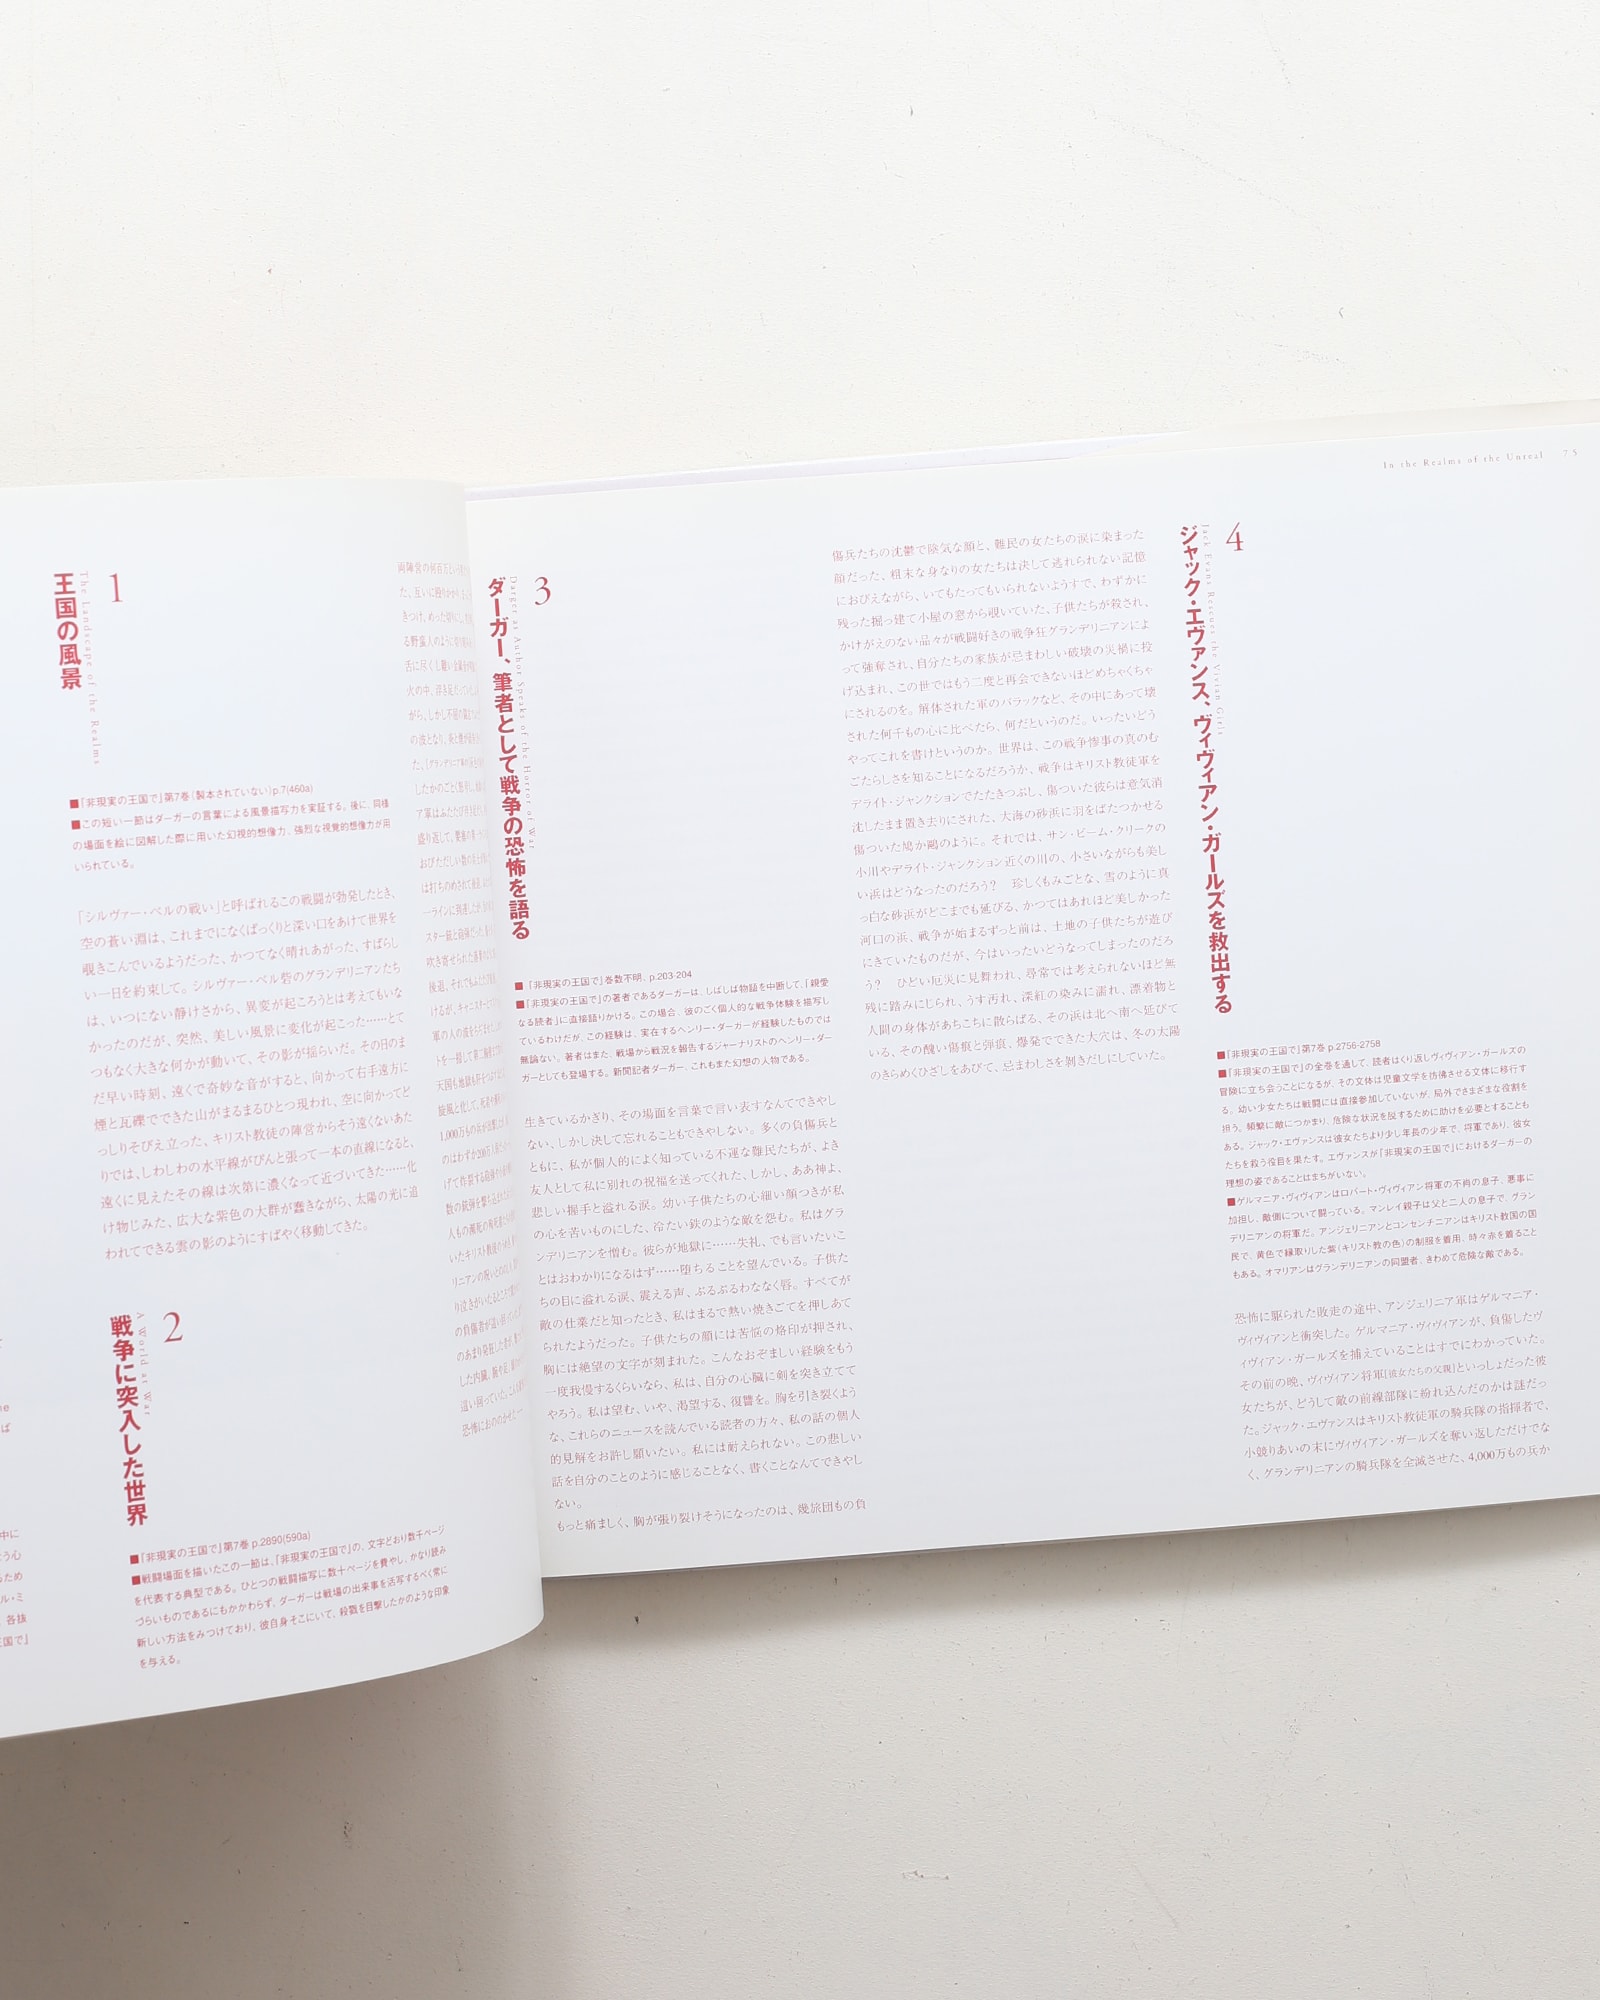 In the Realms of the Unreal 75
1
王国の風景
The Landscape of the Realms
■『非現実の王国で』第7巻(製本されていない)p.7(460a)
■この短い一節はダーガーの言葉による風景描写力を実証する。後に、同様
の場面を絵に図解した際に用いた幻視的想像力、強烈な視覚的想像力が用
いられている。
「シルヴァー・ベルの戦い」と呼ばれるこの戦闘が勃発したとき、
空の蒼い淵は、これまでになくぱっくりと深い口をあけて世界を
覗きこんでいるようだった、かつてなく晴れあがった、すばらし
い一日を約束して。シルヴァー・ベル砦のグランデリニアンたち
は、いつにない静けさから、異変が起ころうとは考えてもいな
かったのだが、突然、美しい風景に変化が起こった……とて
つもなく大きな何かが動いて、その影が揺らいだ。その日のま
だ早い時刻、遠くで奇妙な音がすると、向かって右手遠方に
煙と瓦礫でできた山がまるまるひとつ現われ、空に向かってど
っしりそびえ立った、キリスト教徒の陣営からそう遠くないあた
りでは、しわしわの水平線がぴんと張って一本の直線になると、
遠くに見えたその線は次第に濃くなって近づいてきた……化
け物じみた、広大な紫色の大群が蠢きながら、太陽の光に追
われてできる雲の影のようにすばやく移動してきた。
2
戦争に突入した世界
A World at War
■『非現実の王国で』第7巻 p.2890(590a)
■戦闘場面を描いたこの一節は、『非現実の王国で』の、文字どおり数千ページ
を代表する典型である。ひとつの戦闘描写に数十ページを費やし、かなり読み
づらいものであるにもかかわらず、ダーガーは戦場の出来事を活写するべく常に
新しい方法をみつけており、彼自身そこにいて、殺戮を目撃したかのような印象
を与える。
3
ダーガー、筆者として戦争の恐怖を語る
Darger as Author Speaks of the Horror of War
■『非現実の王国で』巻数不明、p.203-204
■『非現実の王国で』の著者であるダーガーは、しばしば物語を中断して、「親愛
なる読者」に直接語りかける。この場合、彼のごく個人的な戦争体験を描写し
ているわけだが、この経験は、実在するヘンリー・ダーガーが経験したものでは
無論ない。著者はまた、戦場から戦況を報告するジャーナリストのヘンリー・ダー
ガーとしても登場する。新聞記者ダーガー、これもまた幻想の人物である。
生きているかぎり、その場面を言葉で言い表すなんてできやし
ない、しかし決して忘れることもできやしない。多くの負傷兵と
ともに、私が個人的によく知っている不運な難民たちが、よき
友人として私に別れの祝福を送ってくれた、しかし、ああ神よ、
悲しい握手と溢れる涙。幼い子供たちの心細い顔つきが私
の心を苦いものにした、冷たい鉄のような敵を怨む。私はグラ
ンデリニアンを憎む。彼らが地獄に……失礼、でも言いたいこ
とはおわかりになるはず……堕ちることを望んでいる。子供た
ちの目に溢れる涙、震える声、ぶるぶるわななく唇。すべてが
敵の仕業だと知ったとき、私はまるで熱い焼きごてを押しあて
られたようだった。子供たちの顔には苦悩の烙印が押され、
胸には絶望の文字が刻まれた。こんなおぞましい経験をもう
一度我慢するくらいなら、私は、自分の心臓に剣を突き立てて
やろう。私は望む、いや、渇望する、復讐を。胸を引き裂くよう
な、これらのニュースを読んでいる読者の方々、私の話の個人
的見解をお許し願いたい。私には耐えられない。この悲しい
話を自分のことのように感じることなく、書くことなんてできやし
ない。
もっと痛ましく、胸が張り裂けそうになったのは、幾旅団もの負
傷兵たちの沈鬱で陰気な顔と、難民の女たちの涙に染まった
顔だった、粗末な身なりの女たちは決して逃れられない記憶
におびえながら、いてもたってもいられないようすで、わずかに
残った掘っ建て小屋の窓から覗いていた、子供たちが殺され、
かけがえのない品々が戦闘好きの戦争狂グランデリニアンによ
って強奪され、自分たちの家族が忌まわしい破壊の災禍に投
げ込まれ、この世ではもう二度と再会できないほどめちゃくちゃ
にされるのを。解体された軍のバラックなど、その中にあって壊
された何千もの心に比べたら、何だというのだ。いったいどう
やってこれを書けというのか。世界は、この戦争惨事の真のむ
ごたらしさを知ることになるだろうか、戦争はキリスト教徒軍を
デライト・ジャンクションでたたきつぶし、傷ついた彼らは意気消
沈したまま置き去りにされた、大海の砂浜に羽をばたつかせる
傷ついた鳩か鷗のように。それでは、サン・ビーム・クリークの
小川やデライト・ジャンクション近くの川の、小さいながらも美し
い浜はどうなったのだろう? 珍しくもみごとな、雪のように真
っ白な砂浜がどこまでも延びる、かつてはあれほど美しかった
河口の浜、戦争が始まるずっと前は、土地の子供たちが遊び
にきていたものだが、今はいったいどうなってしまったのだろ
う? ひどい厄災に見舞われ、尋常では考えられないほど無
残に踏みにじられ、うす汚れ、深紅の染みに濡れ、漂着物と
人間の身体があちこちに散らばる、その浜は北へ南へ延びて
いる、その醜い傷痕と弾痕、爆発でできた大穴は、冬の太陽
のきらめくひざしをあびて、忌まわしさを剝きだしにしていた。
4
ジャック・エヴァンス、ヴィヴィアン・ガールズを救出する
Jack Evans Rescues the Vivian Girls
■『非現実の王国で』第7巻 p.2756-2758
■『非現実の王国で』の全巻を通して、読者はくり返しヴィヴィアン・ガールズの
冒険に立ち会うことになるが、その文体は児童文学を彷彿させる文体に移行す
る。幼い少女たちは戦闘には直接参加していないが、局外でさまざまな役割を
担う。頻繁に敵につかまり、危険な状況を脱するために助けを必要とすることも
ある。ジャック・エヴァンスは彼女たちより少し年長の少年で、将軍であり、彼女
たちを救う役目を果たす。エヴァンスが『非現実の王国で』におけるダーガーの
理想の姿であることはまちがいない。
■ゲルマニア・ヴィヴィアンはロバート・ヴィヴィアン将軍の不肖の息子、悪事に
加担し、敵側について闘っている。マンレイ親子は父と二人の息子で、グラン
デリニアンの将軍だ。アンジェリニアンとコンセンチニアンはキリスト教国の国
民で、黄色で縁取りした紫(キリスト教の色)の制服を着用、時々赤を着ること
もある。オマリアンはグランデリニアンの同盟者、きわめて危険な敵である。
恐怖に駆られた敗走の途中、アンジェリニア軍はゲルマニア・
ヴィヴィアンと衝突した。ゲルマニア・ヴィヴィアンが、負傷したヴ
ィヴィアン・ガールズを捕えていることはすでにわかっていた。
その前の晩、ヴィヴィアン将軍(彼女たちの父親)といっしょだった彼
女たちが、どうして敵の前線部隊に紛れ込んだのかは謎だっ
た。ジャック・エヴァンスはキリスト教徒軍の騎兵隊の指揮者で、
小競りあいの末にヴィヴィアン・ガールズを奪い返しただけでな
く、グランデリニアンの騎兵隊を全滅させた、4,000万もの兵か